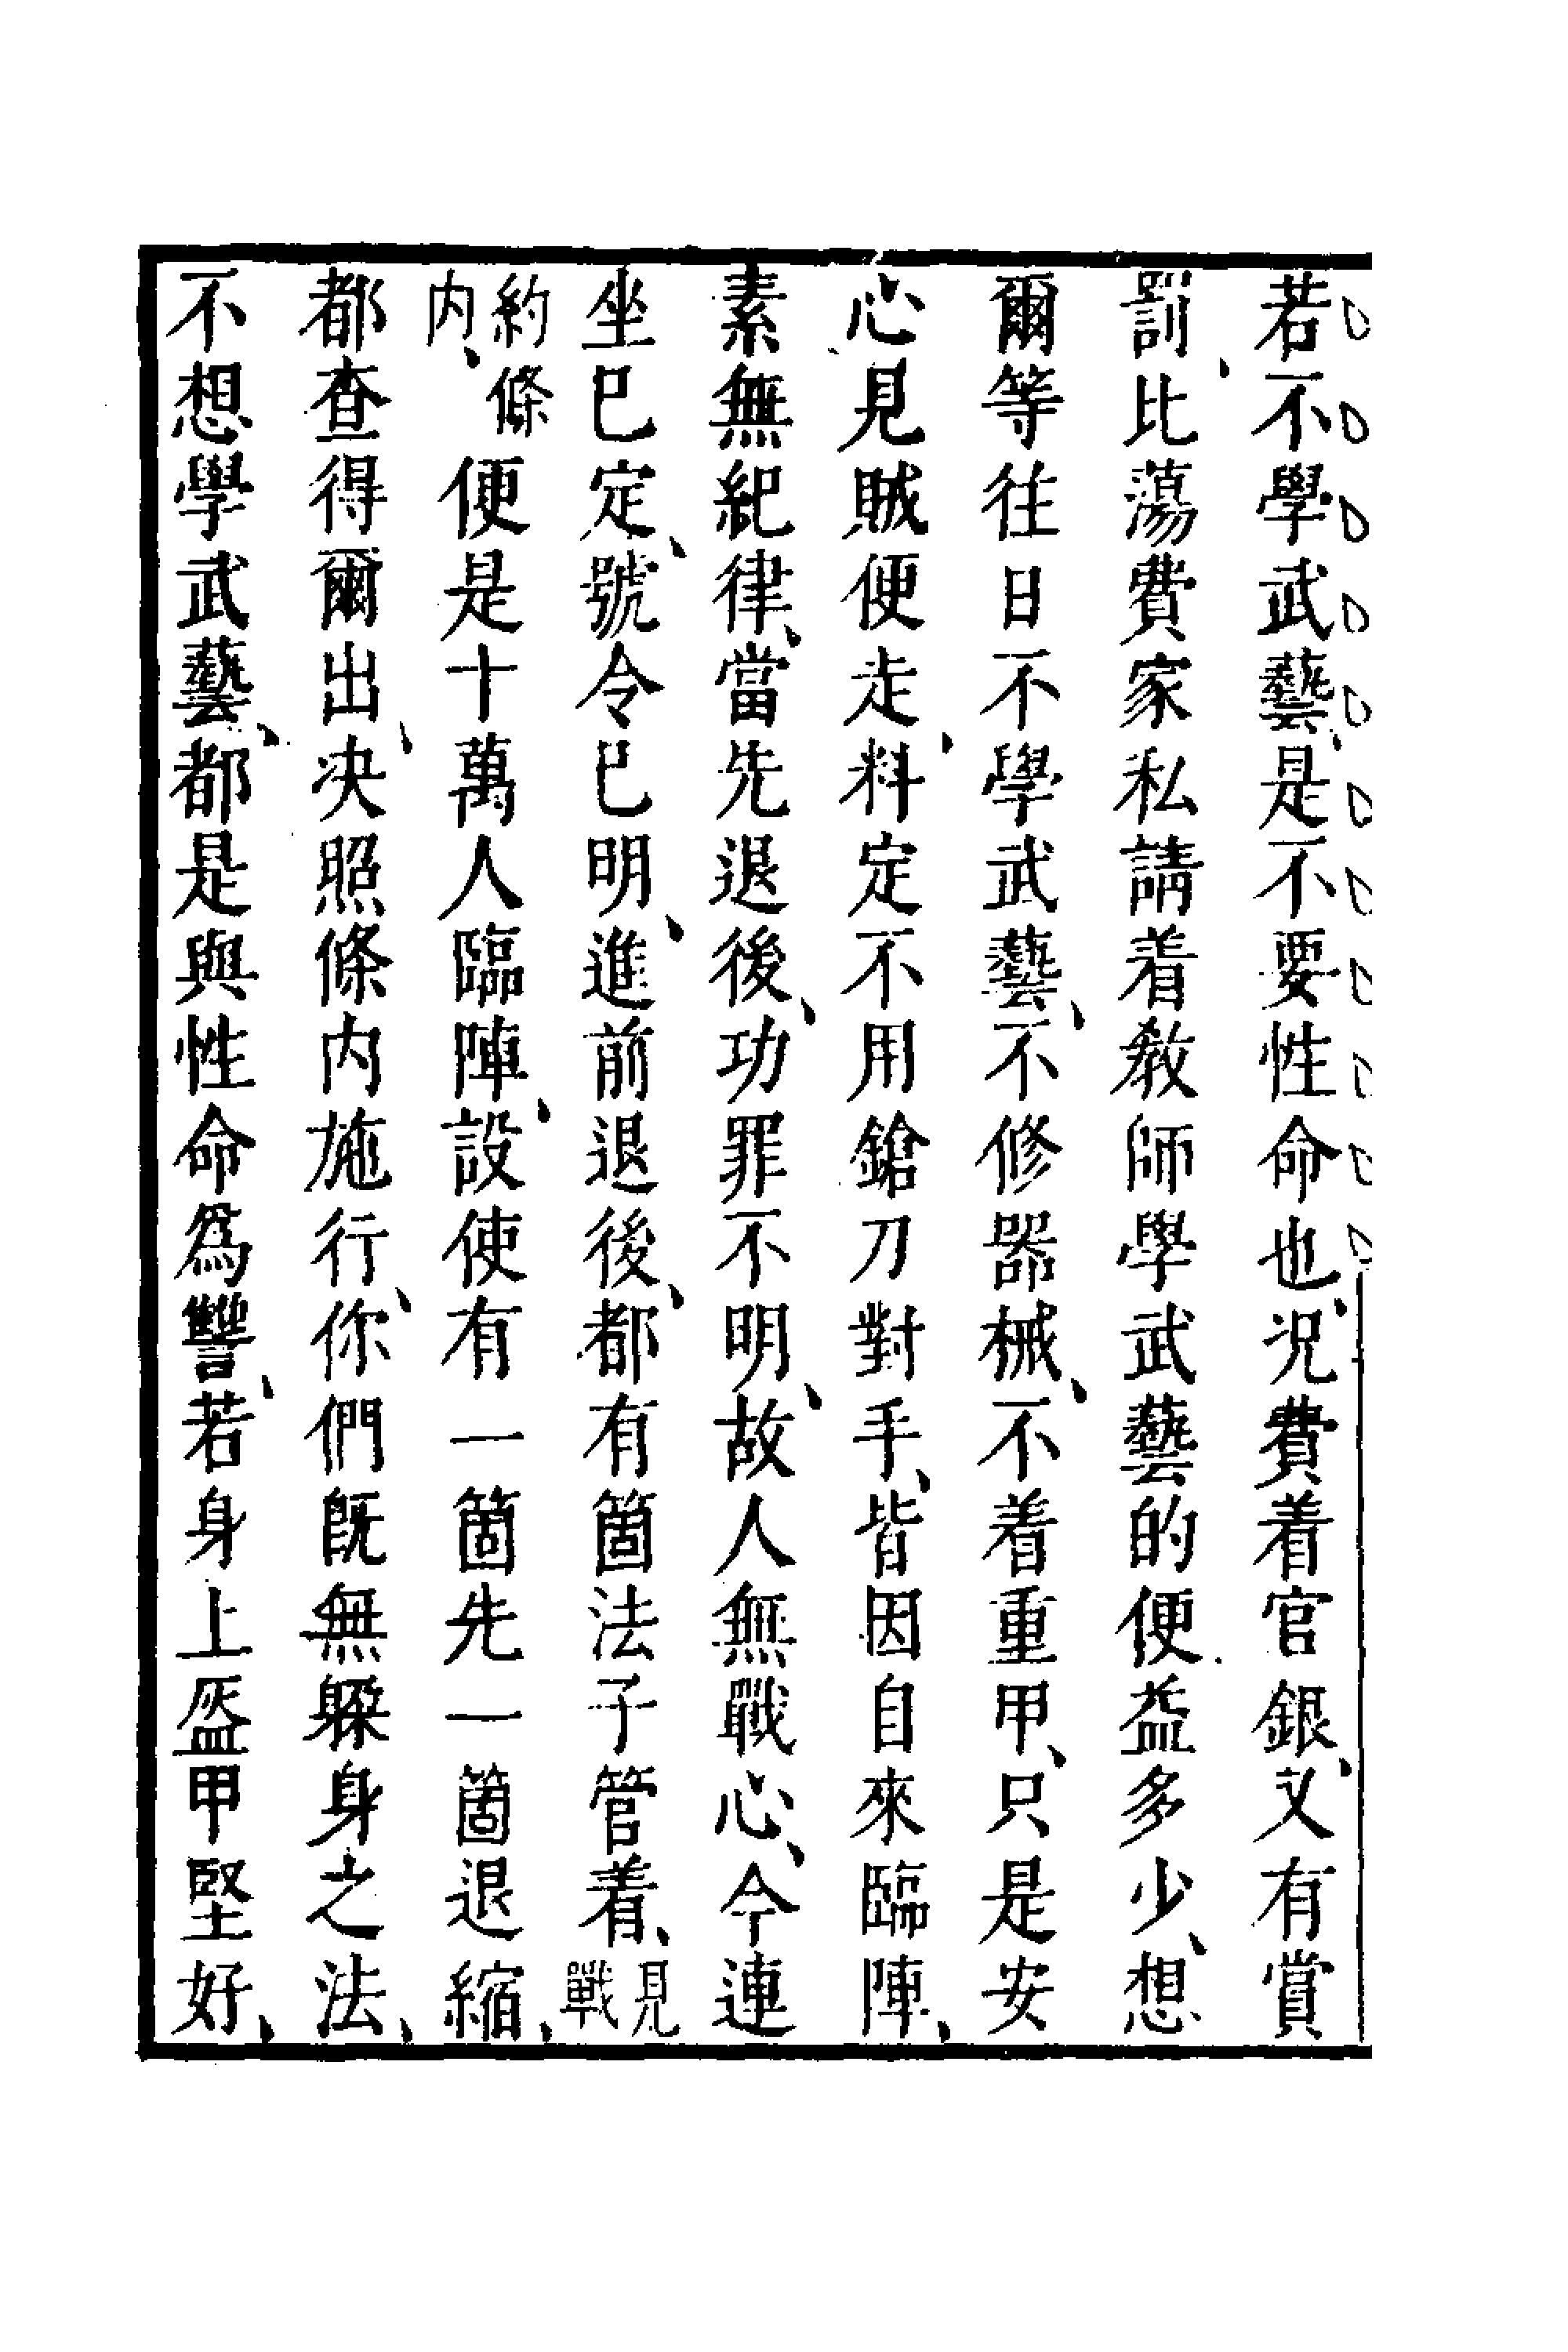 若不學武藝、是不要性命也、况費着官銀、又有賞
罰、比蕩費家私請着教師學武藝的便益多少、想
爾等往日不學武藝、不修器械、不着重甲、只是安
心見賊便走、料定不用鎗刀對手、皆因自來臨陣、
素無紀律、當先退後、功罪不明、故人無戰心、今連
坐巳定、號令巳明、進前退後、都有箇法子管着、見戰
約條内、便是十萬人臨陣、設使有一箇先一箇退縮、
都查得爾出、决照條内施行、你們既無躱身之法、
不想學武藝、都是與性命爲讐、若身上盔甲堅好、